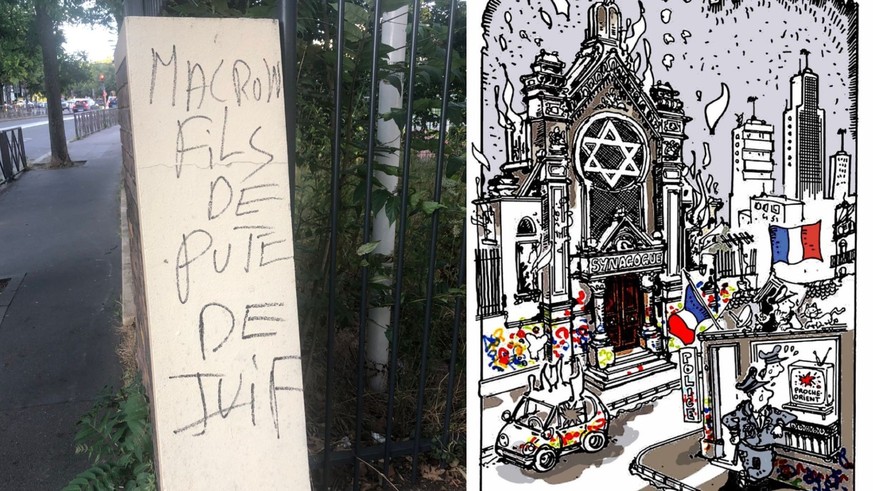 MACRON
FILS
DE
PUTE
DE
JUIF
SYNAGOGUE
POLICE
PROCHE-
ORIENT